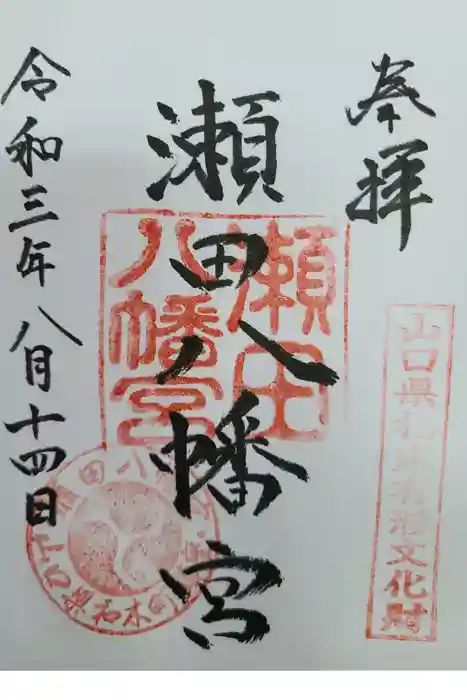 奉拝
山口県指定有形文化財
瀬田八幡宮
瀬田
八幡宮
令和三年八月十四日